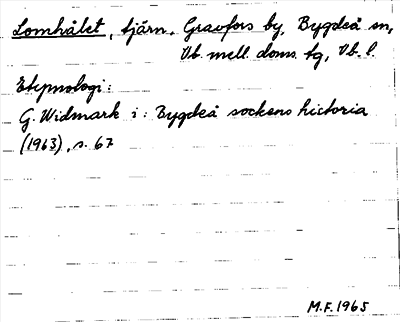 Lomhålet, tjärn, Gravfors by, Bygdeå sn,
Vb. mell. doms. tg, Vb. l.
Etymologi:
G. Widmark i: Bygdeå sockens historia
(1963), s. 67
M.F. 1965